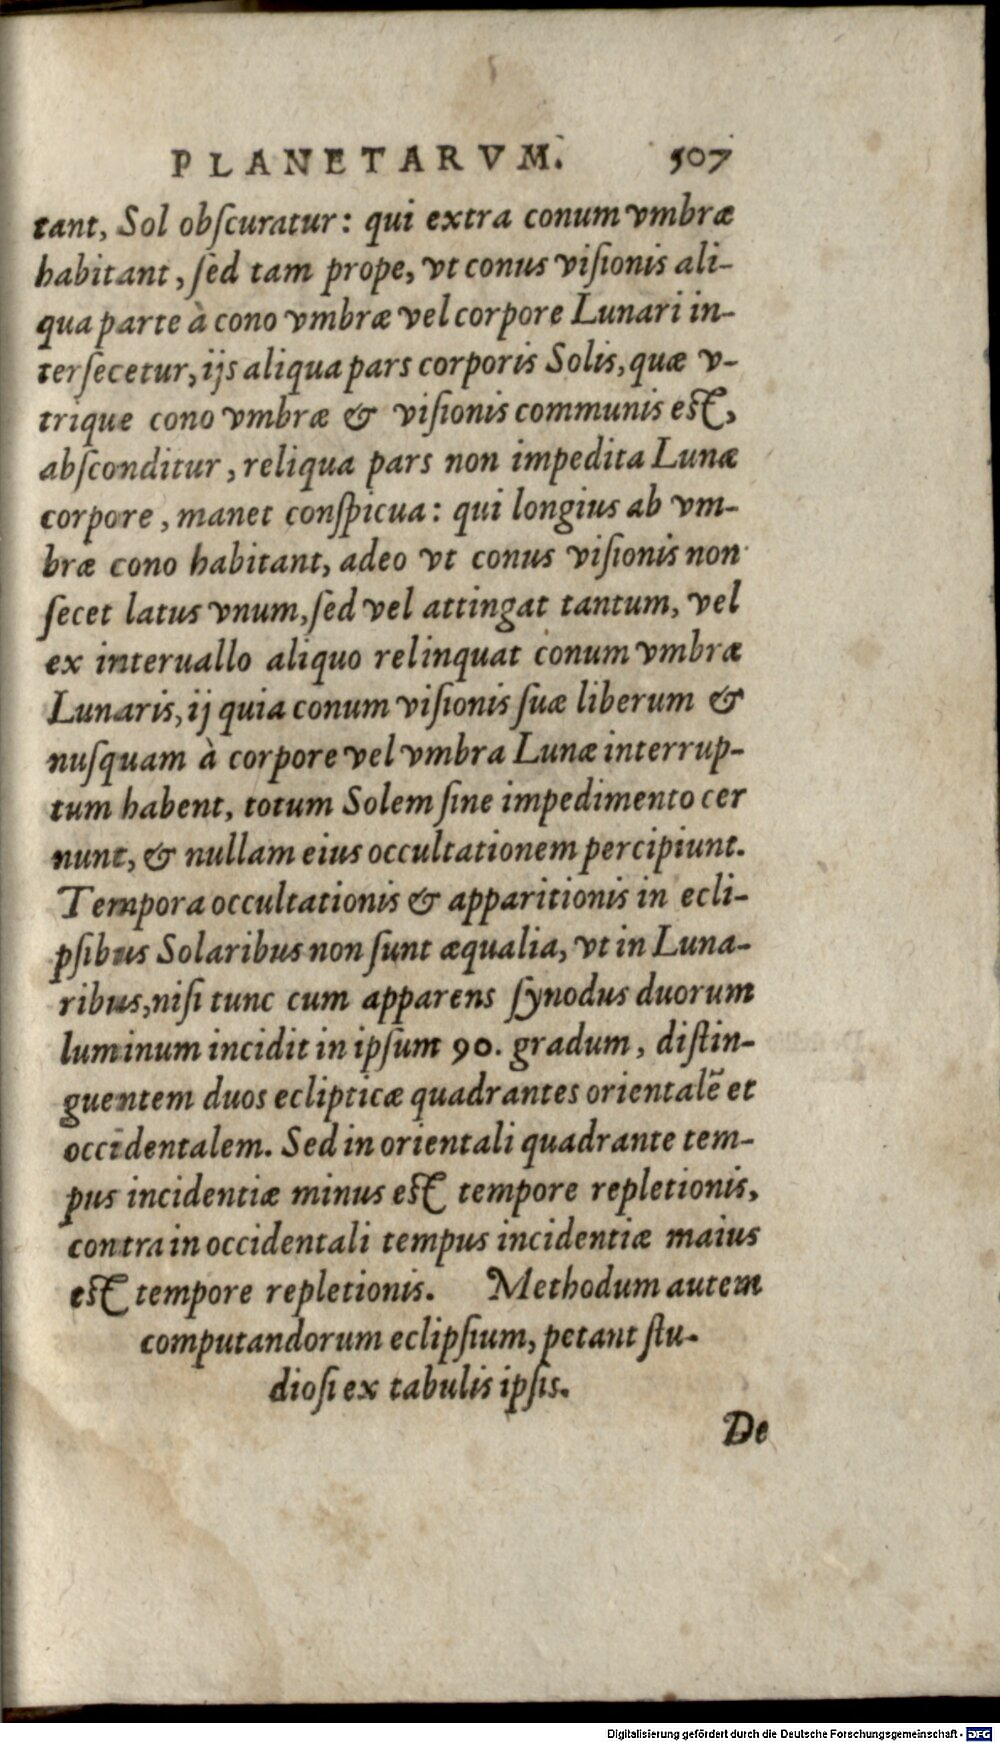 PLANETARVM. 507
tant, Sol obſcuratur: qui extra conum vmbræ
habitant, ſed tam prope, vt conus viſionis ali-
qua parte à cono vmbræ vel corpore Lunari in-
terſecetur, ijs aliqua pars corporis Solis, quæ v-
trique cono vmbræ & viſionis communis eſt,
abſconditur, reliqua pars non impedita Lunæ
corpore, manet conſpicua: qui longius ab vm-
bræ cono habitant, adeo vt conus viſionis non
ſecet latus vnum, ſed vel attingat tantum, vel
ex interuallo aliquo relinquat conum vmbræ
Lunaris, ij quia conum viſionis ſuæ liberum &
nuſquam à corpore vel vmbra Lunæ interrup-
tum habent, totum Solem ſine impedimento cer
nunt, & nullam eius occultationem percipiunt.
Tempora occultationis & apparitionis in ecli-
pſibus Solaribus non ſunt æqualia, vt in Luna-
ribus, niſi tunc cum apparens ſynodus duorum
luminum incidit in ipſum 90. gradum, diſtin-
guentem duos eclipticæ quadrantes orientalē et
occidentalem. Sed in orientali quadrante tem-
pus incidentiæ minus eſt tempore repletionis,
contra in occidentali tempus incidentiæ maius
eſt tempore repletionis. Methodum autem
computandorum eclipſium, petant ſtu-
dioſi ex tabulis ipſis.
De
Digitalisierung gefördert durch die Deutsche Forschungsgemeinschaft - DFG